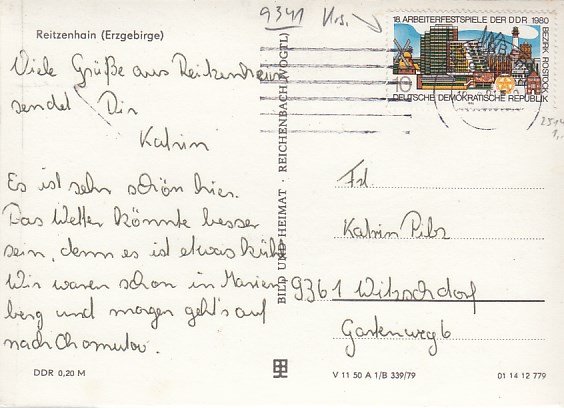 9341 Krs.
18. ARBEITERFESTSPIELE DER DDR 1980
BEZIRK ROSTOCK
10
DEUTSCHE DEMOKRATISCHE REPUBLIK
Reitzenhain (Erzgebirge)
Viele Grüße aus Reitzenhain
sendet Dir
Katrin
Es ist sehr schön hier.
Das Wetter könnte besser
sein, denn es ist etwas kühl.
Wir waren schon in Marien-
berg und morgen geht's auf
nach Chomutov.
DDR 0,20 M
BILD UND HEIMAT · REICHENBACH (VOGTL)
Frl.
Katrin Pilz
9361 Witzschdorf
Gartenweg 6
V 11 50 A 1/B 339/79
01 14 12 779